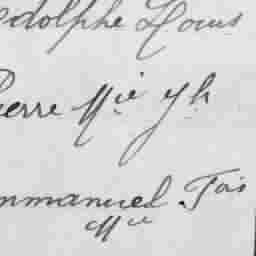 edolphe Louis
Pierre Mie Jh
mmanuel Fois
Mie